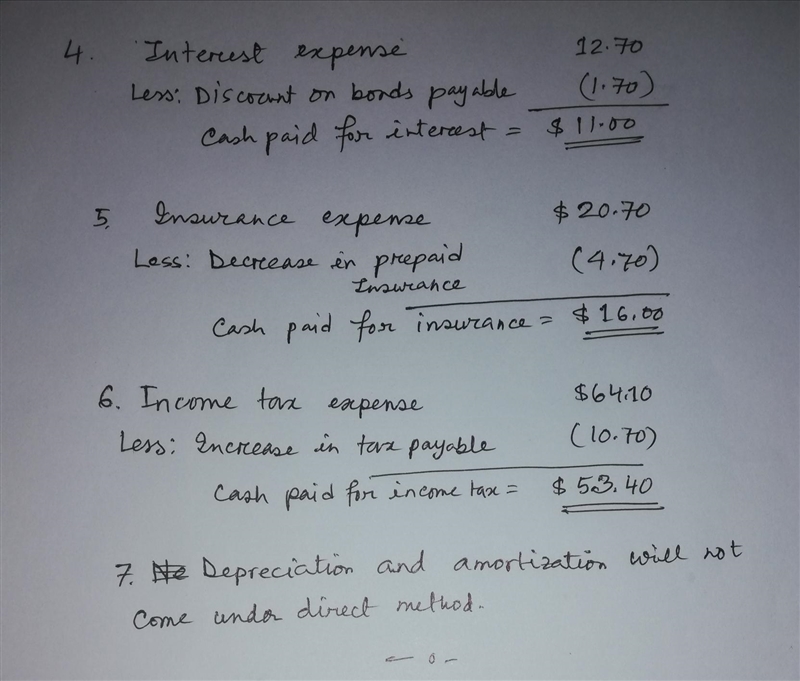 4. Interest expense 12.70
Less: Discount on bonds payable (1.70)
Cash paid for interest = $ 11.00
5. Insurance expense $ 20.70
Less: Decrease in prepaid (4.70)
Insurance
Cash paid for insurance = $ 16.00
6. Income tax expense $64.10
Less: Increase in tax payable (10.70)
Cash paid for income tax = $ 53.40
7. Depreciation and amortization will not
come under direct method.
— 0 —